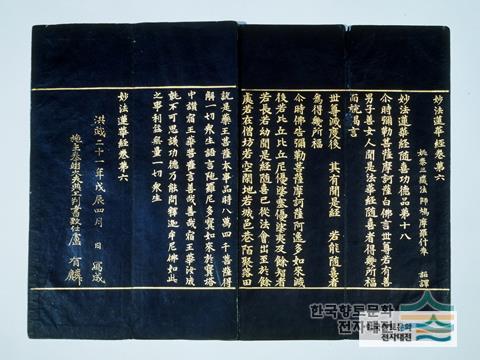 妙法蓮華經卷第六
姚秦三藏法師鳩摩羅什奉 詔譯
妙法蓮華經隨喜功德品第十八
尒時弥勒菩薩摩訶薩白佛言世尊若有善
男子善女人聞是法華經隨喜者得幾所福
而說偈言
世尊滅度後 其有聞是經 若能隨喜者
爲得幾所福
尒時佛告弥勒菩薩摩訶薩阿逸多如來滅
後若比丘比丘尼優婆塞優婆夷及餘智者
若長若幼聞是經隨喜已從法會出至於餘
處若在僧坊若空閑地若城邑巷陌聚落田
說是藥王菩薩本事品時八萬四千菩薩得
解一切衆生語言陁羅尼多寶如來於寶塔
中讚宿王華菩薩言善哉善哉宿王華汝成
就不可思議功德乃能問釋迦牟尼佛如此
之事利益無量一切衆生
妙法蓮華經卷第六
洪武二十一年戊辰四月 日 寫成
施主奉翊大夫典工判書致仕盧有麟
한국향토문화
전자대전
한국향토문화
전자대전